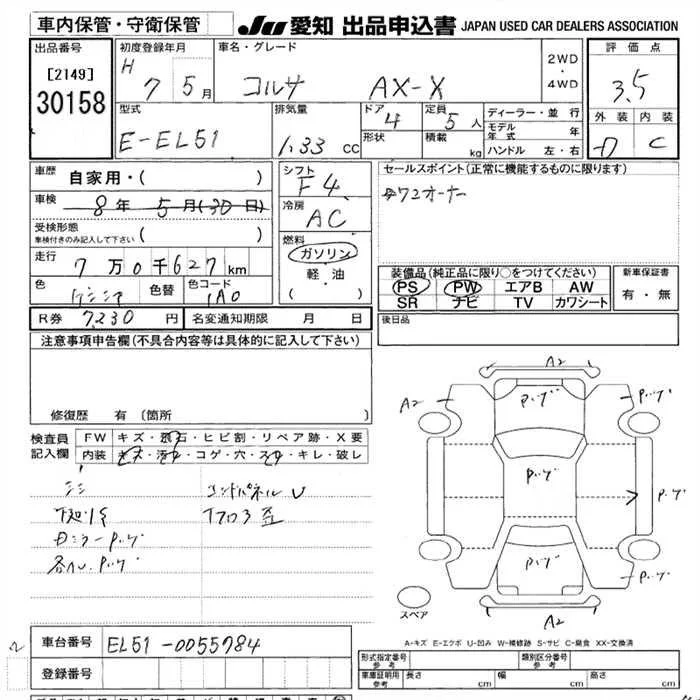 車内保管・守衛保管 JU 愛知 出品申込書 JAPAN USED CAR DEALERS ASSOCIATION
出品番号 [2149] 30158
初度登録年月 H 7 5月
車名・グレード コルサ AX-X
2WD・4WD
評価点 3.5
外装 D 内装 C
型式 E-EL51
排気量 1.33 cc
ドア 4 形状
定員 5人 積載 kg
ディーラー・並行
モデル年式 年
ハンドル 左・右
車歴 自家用・( )
車検 8年 5月(30日)
受検形態 車検付きのみ記入して下さい ( )
走行 7万0千627km
色 色替 色コード 1A0
R券 7,230円 名変通知期限 月 日
シフト F4
冷房 AC
燃料 ガソリン 軽・油 ( )
セールスポイント(正常に機能するものに限ります)
装備品(純正品に限り○をつけてください)
PS PW エアB AW
SR ナビ TV カワシート
新車保証書 有・無
後日品
注意事項申告欄(不具合内容等は具体的に記入して下さい)
修復歴 有 (箇所 )
検査員記入欄
FW キズ・飛石・ヒビ割・リペア跡・X要
内装 キズ・汚れ・コゲ・穴・スレ・キレ・破レ
エンドパネル U
下廻りS
Dミラー Pツゲ
A2
A2 Pツゲ Pツゲ
Pツゲ Pツゲ
Pツゲ Pツゲ
A2
スペア
A-キズ E-エクボ U-凹み W-補修跡 S-サビ C-腐食 XX-交換済
車台番号 EL51-0055784
登録番号
形式指定番号 参考 類別区分番号 参考
車庫証明用 参考 長さ 幅 高さ